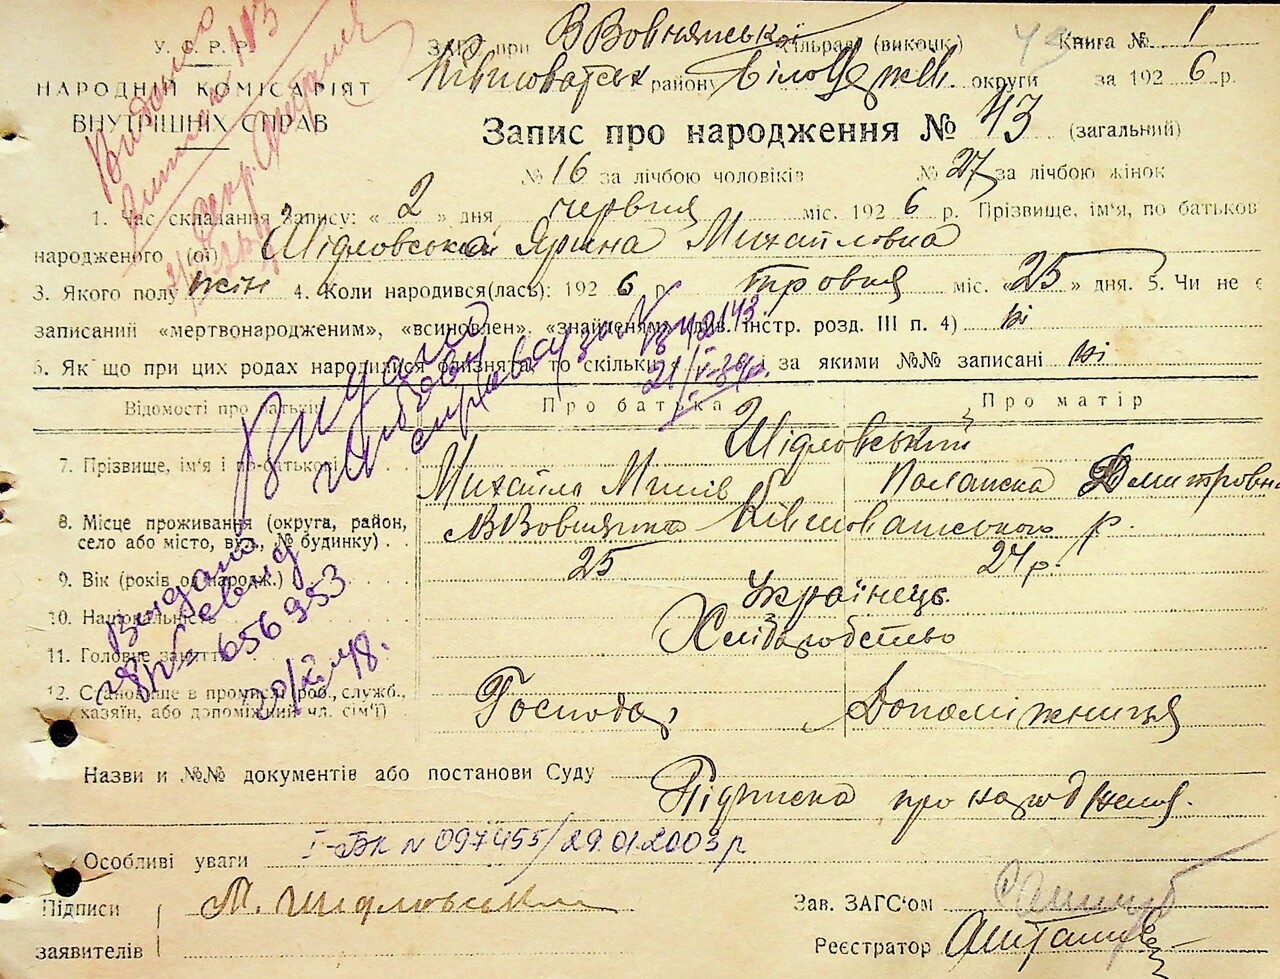 У. С. Р. Р.
НАРОДНІЙ КОМІСАРІЯТ
ВНУТРІШНІХ СПРАВ
ЗАГС при В Вовнянській сільраді (виконк.) Книга № 1
району БілоЦерків округи за 1926 р.
Запис про народження № 43 (загальний)
№ 16 за лічбою чоловіків № 27 за лічбою жінок
1. Час складання запису: « 2 » дня червня міс. 1926 р. Прізвище, ім'я, по батьков
народженого (ої) Шідловська Ярина Михайлівна
3. Якого полу жін 4. Коли народився(лась): 1926 р. травня міс. « 25 » дня. 5. Чи не є
записаний «мертвонародженим», «всиновлен». «знайденям» (див. інстр. розд. III п. 4) ні
6. Як що при цих родах народилися близнята, то скільки і за якими №№ записані ні
Відомості про батьків Про батька Про матір
Шідловський
7. Прізвище, ім'я і по-батькові Михайло Дмитровна
8. Місце проживання (округа, район,
село або місто, вул., № будинку)
9. Вік (років од народж.) 25 24 р.
10. Національність Українець
11. Головне заняття Хліборобство
12. Становище в промислі (роб., служб.,
хазяїн, або допоміжний чл. сім'ї) Господар Допоміжниця
Назви и №№ документів або постанови Суду Підписка про народження.
Особливі уваги І-БК № 097455/29.01.2003 р
Підписи
заявителів М. Шидловський
Зав. ЗАГС'ом
Реєстратор
Видано
Видано
№ 656953